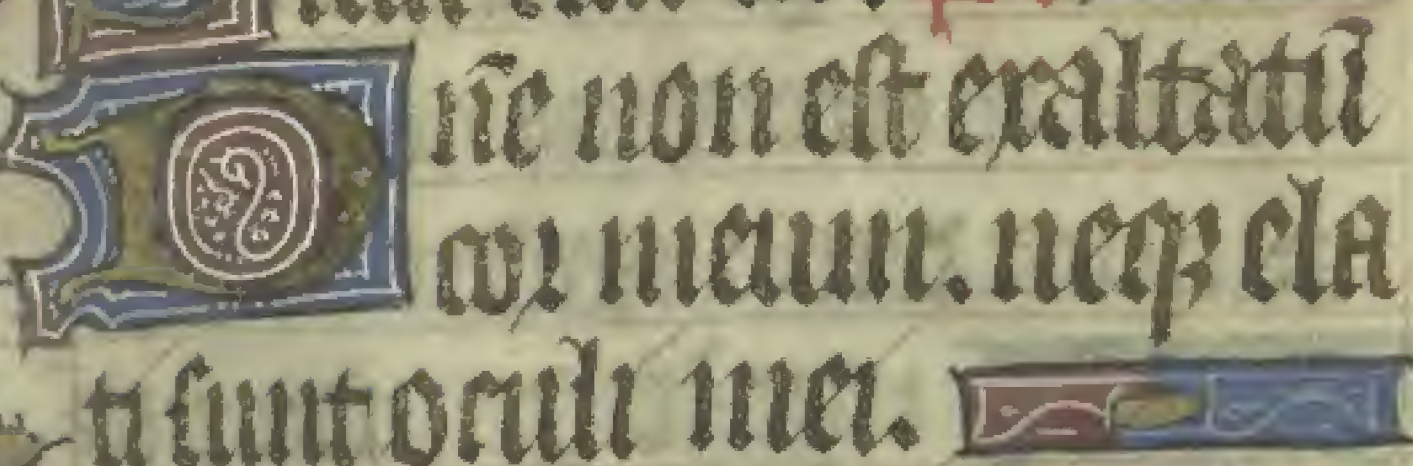 Dñe non est exaltatū
cor meum. neqꝫ ela
ti sunt oculi mei.